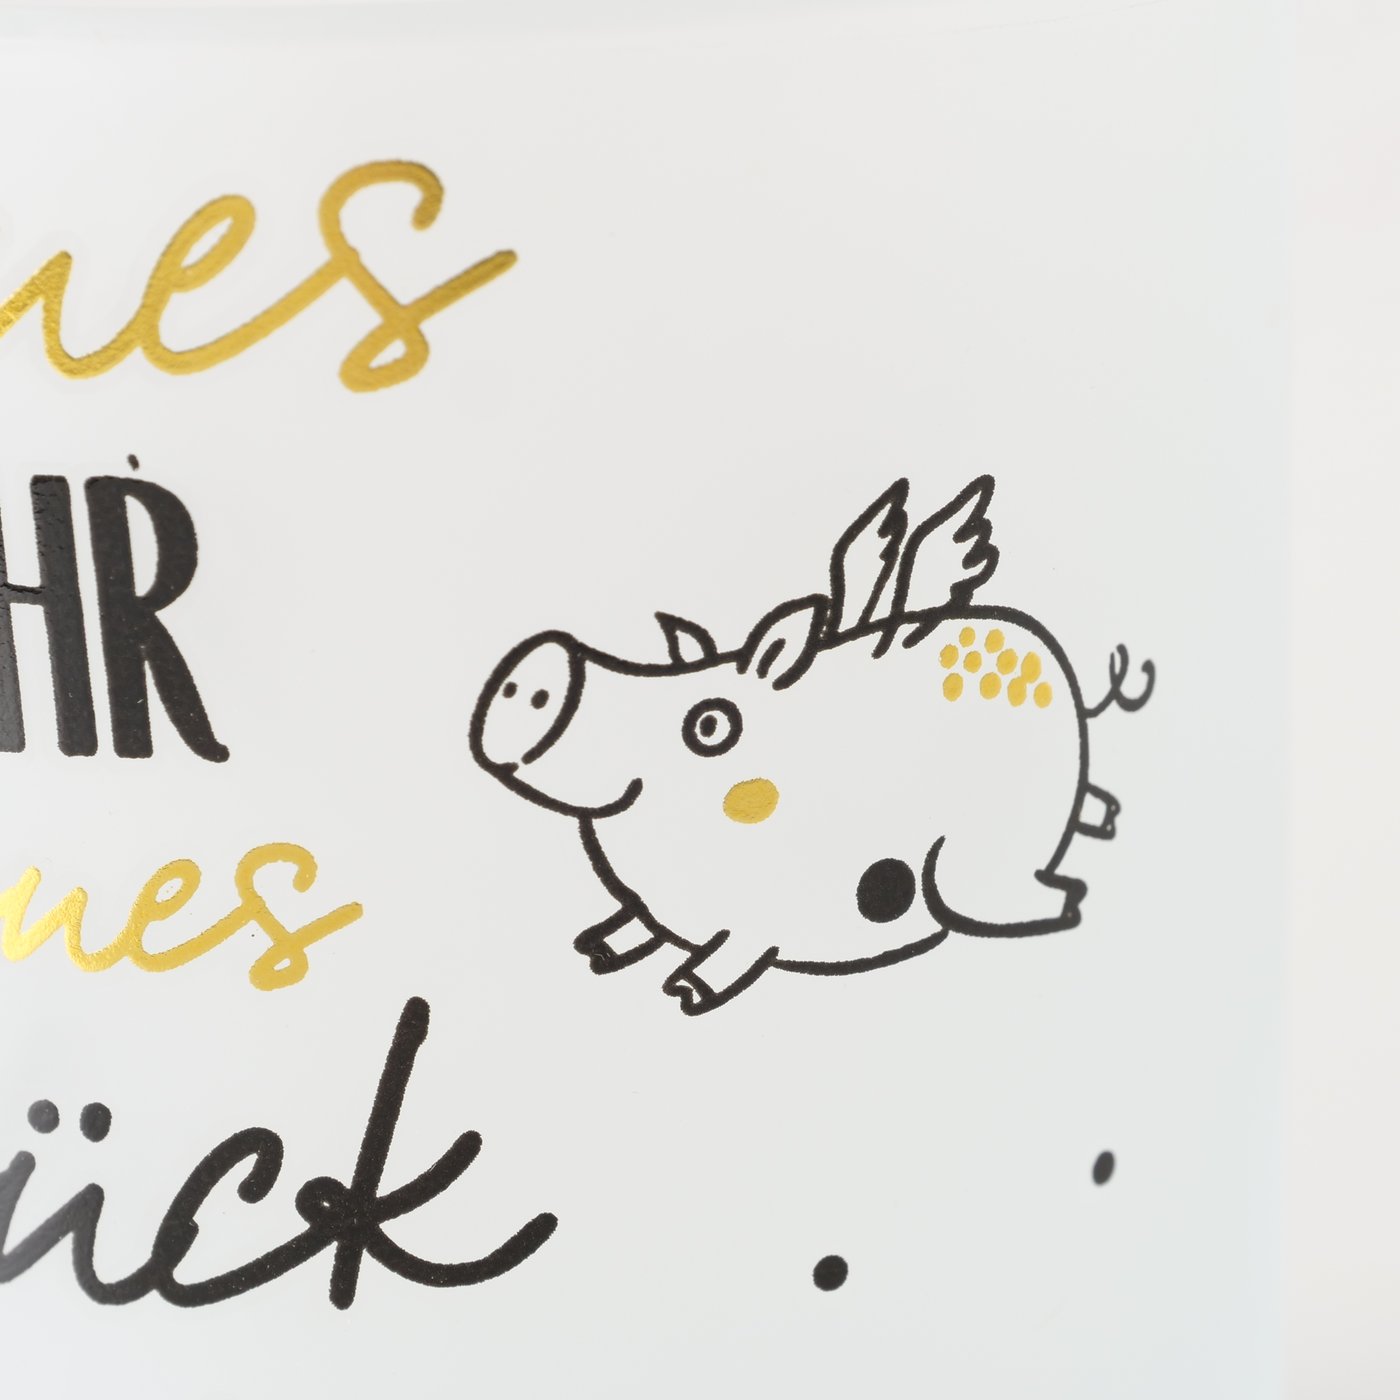 nes
HR
nes
ück